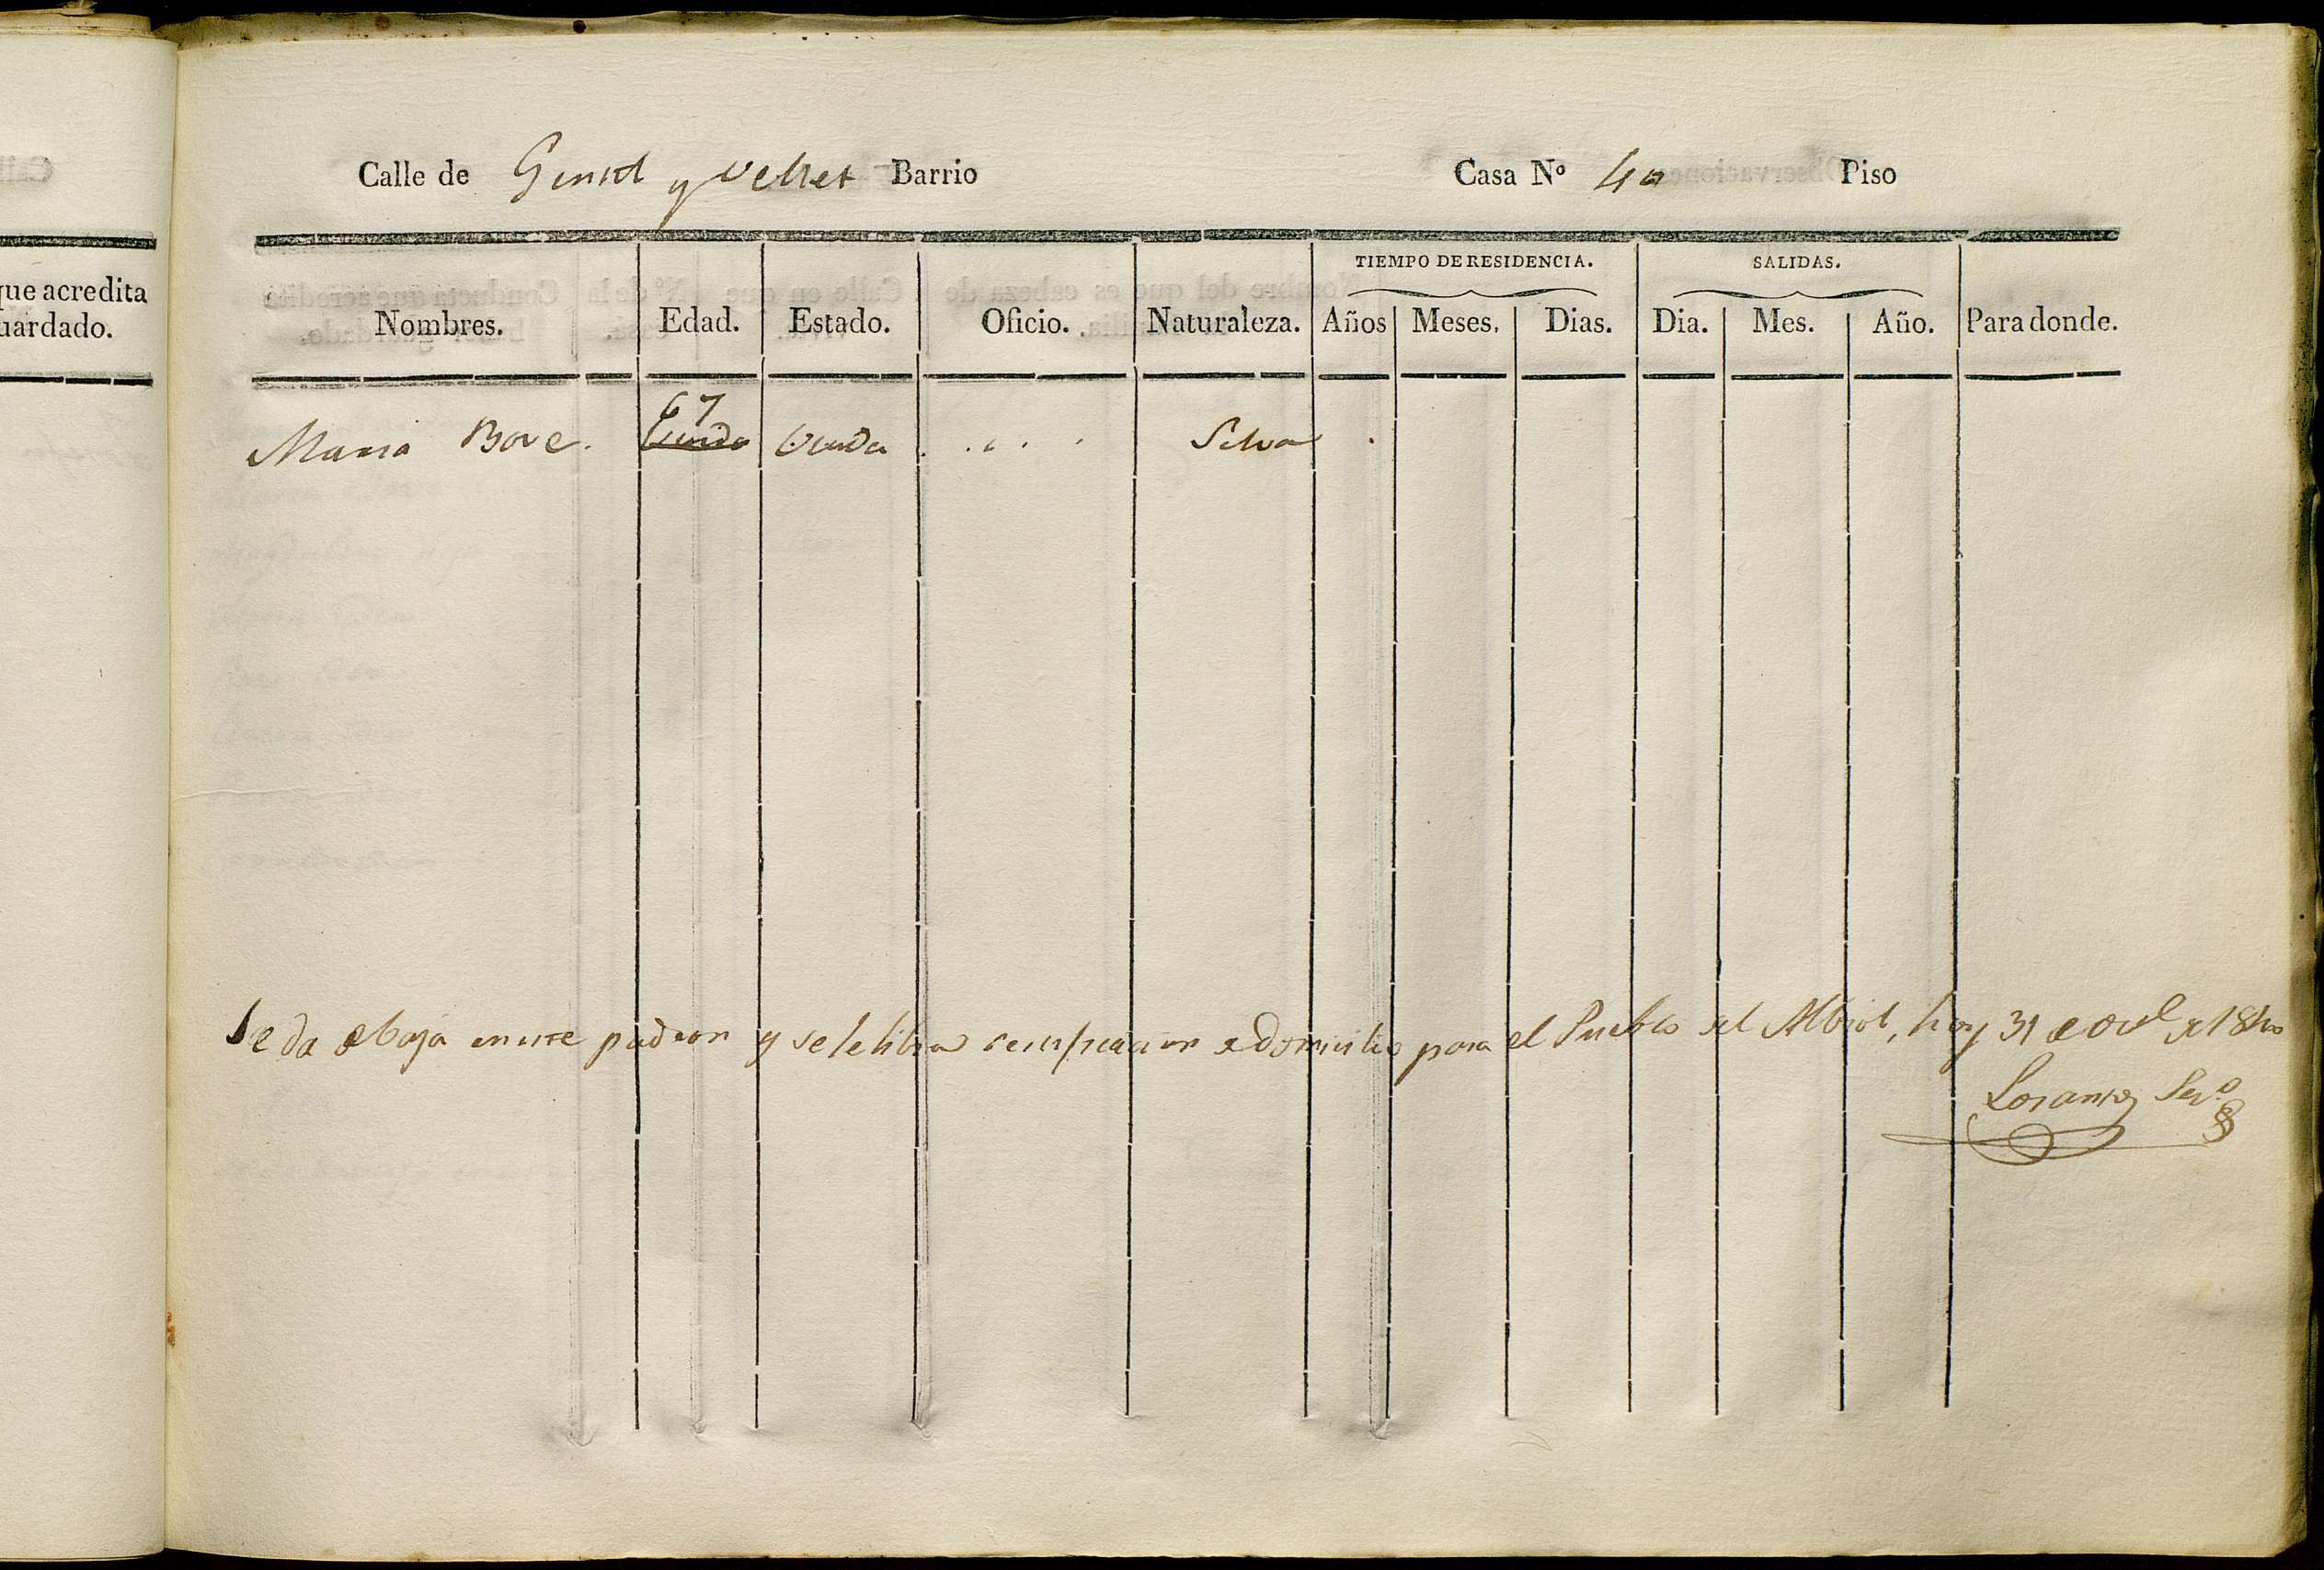 que acredita
uardado.
Calle de Ginsol y Vellet Barrio Casa Nº 40 Piso
TIEMPO DE RESIDENCIA. SALIDAS.
Nombres. Edad. Estado. Oficio. Naturaleza. Años Meses. Dias. Dia. Mes. Año. Para donde.
67
Maria Bove. Viuda Viuda Selva
Se da de baja en este padron y se le libra de domicilio para el Pueblo del Albiol, hoy 31 de de 1840
Sevº